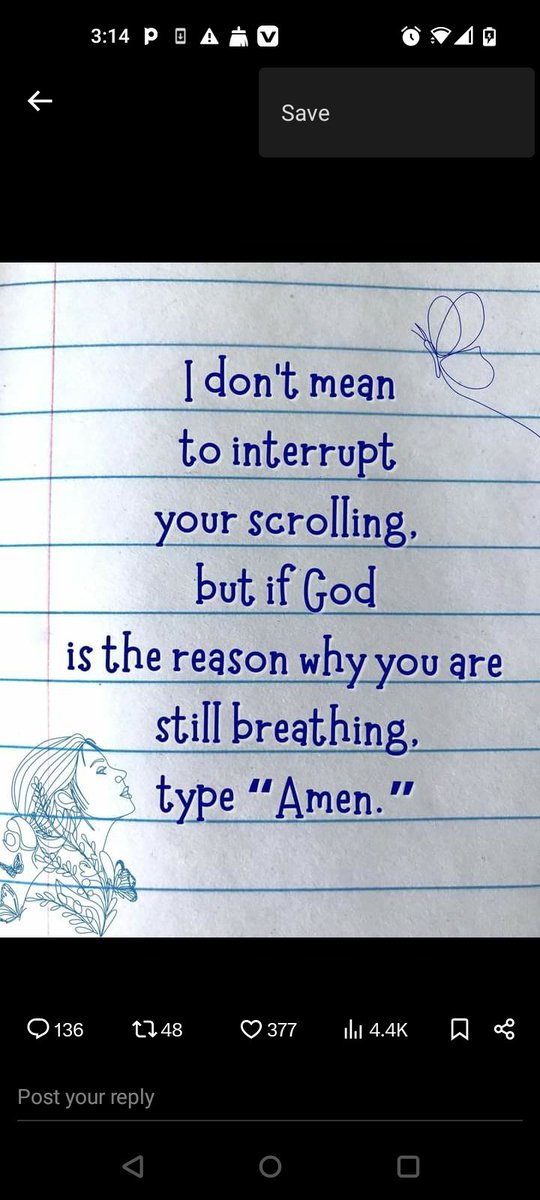 3:14
Save
I don't mean
to interrupt
your scrolling,
but if God
is the reason why you are
still breathing,
type “Amen.”
136 48 377 4.4K
Post your reply